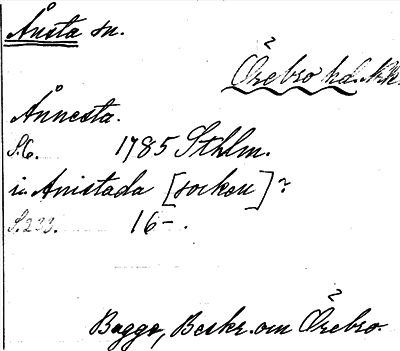 Ånsta sn.
Örebro hd. Nke.
Ånnesta.
S. 6. 1785 Sthlm.
in Anistada [socken]?
S. 233. 16-.
Bagge, Beskr. om Örebro.